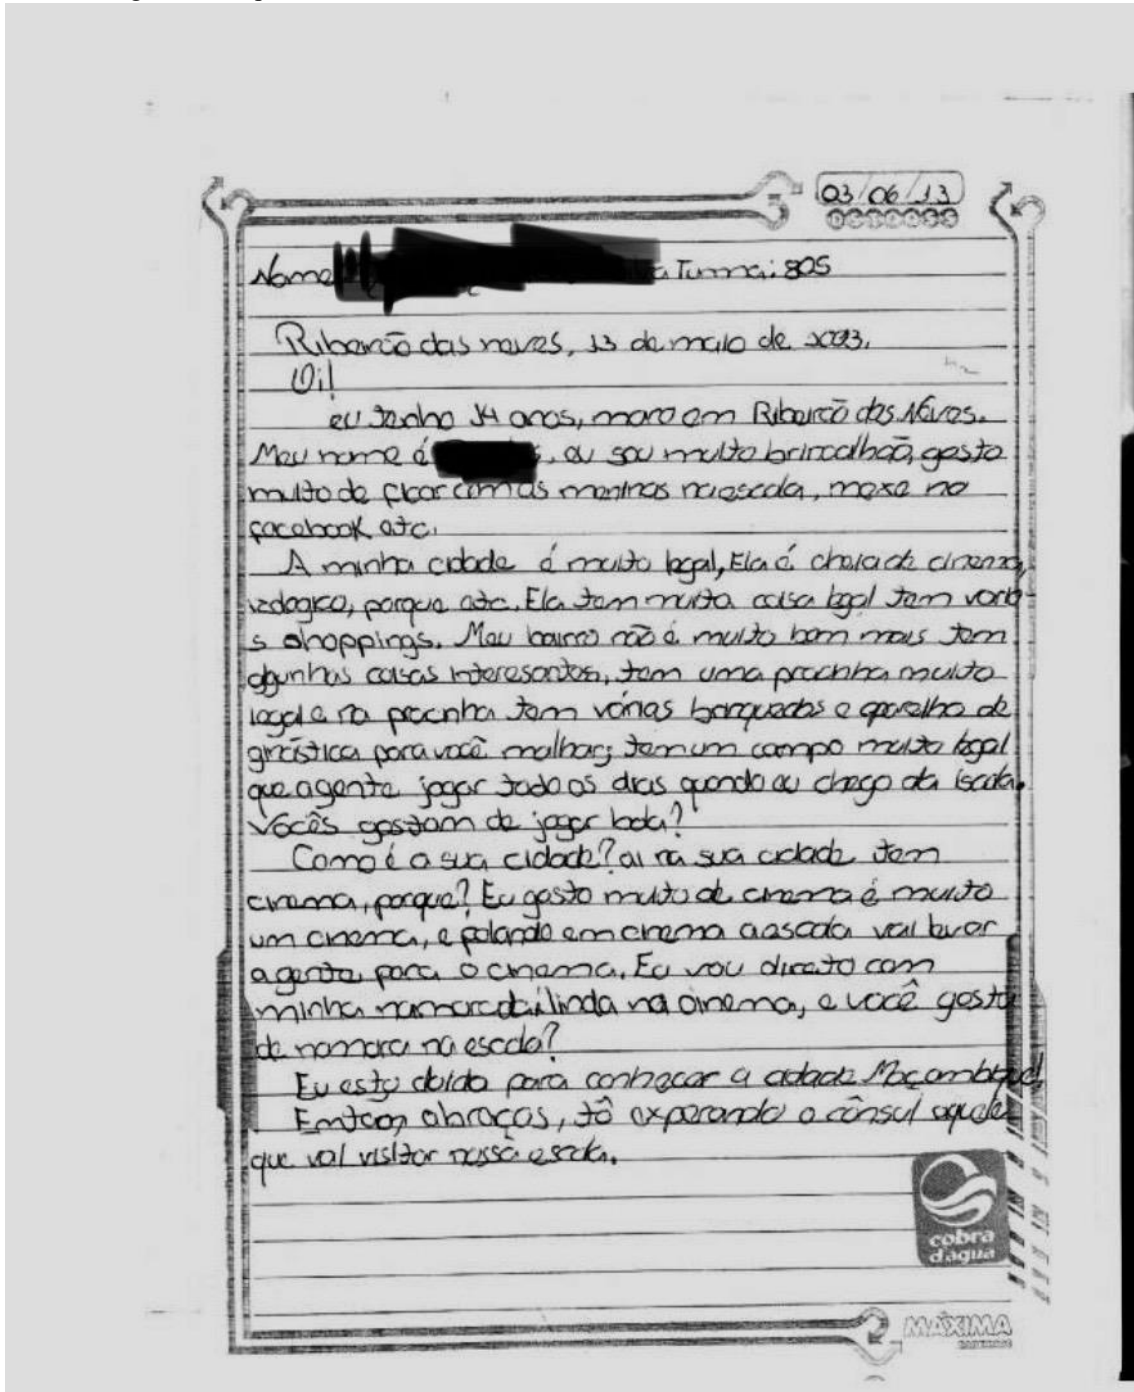 03/06/13
Nome Turma: 805
Ribeirão das neves, 13 de maio de
Oi!
eu tenho 14 anos, moro em Ribeirão das Neves.
Meu nome é , eu sou muito brincalhão, gosto
muito de ficar com as meninas na escola, mexe no
facebook etc.
A minha cidade é muito legal, Ela é cheia de cinema,
zologico, parque etc. Ela tem muita coisa legal tem vario-
s shoppings. Meu bairro não é muito bom mais tem
algunhas coisas interesantes, tem uma pracinha muito
legal e na pracinha tem vários brinquedos e aparelho de
ginástica para você malhar; tem um campo muito legal
que agente jogar todo os dias quando eu chego da escola.
Vocês gostam de jogar bola?
Como é a sua cidade? ai na sua cidade tem
cinema, parque? Eu gosto muito de cinema é muito
um cinema, e falando em cinema a escola vai levar
agente para o cinema. Eu vou direto com
minha namorada linda no cinema, e você gosta
de namora na escola?
Eu esto doido para conhecer a cidade Moçambique!
Emtaon abraços, tô experando o cônsul aquele
que vai visitar nossa escola.
cobra
d'agua
MÁXIMA